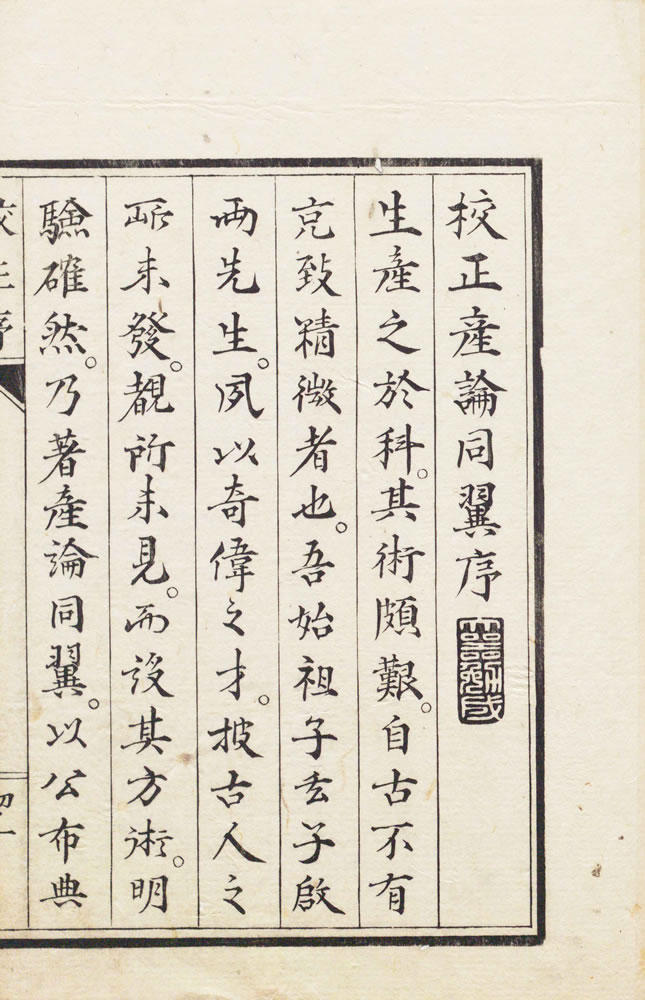 校正産論同翼序
生産之於科。其術頗艱。自古不有
克致精微者也。吾始祖子玄子啟
両先生。夙以奇偉之才。披古人之
所未發。覩所未見。而設其方術。明
驗確然。乃著産論同翼。以公布典
校正序